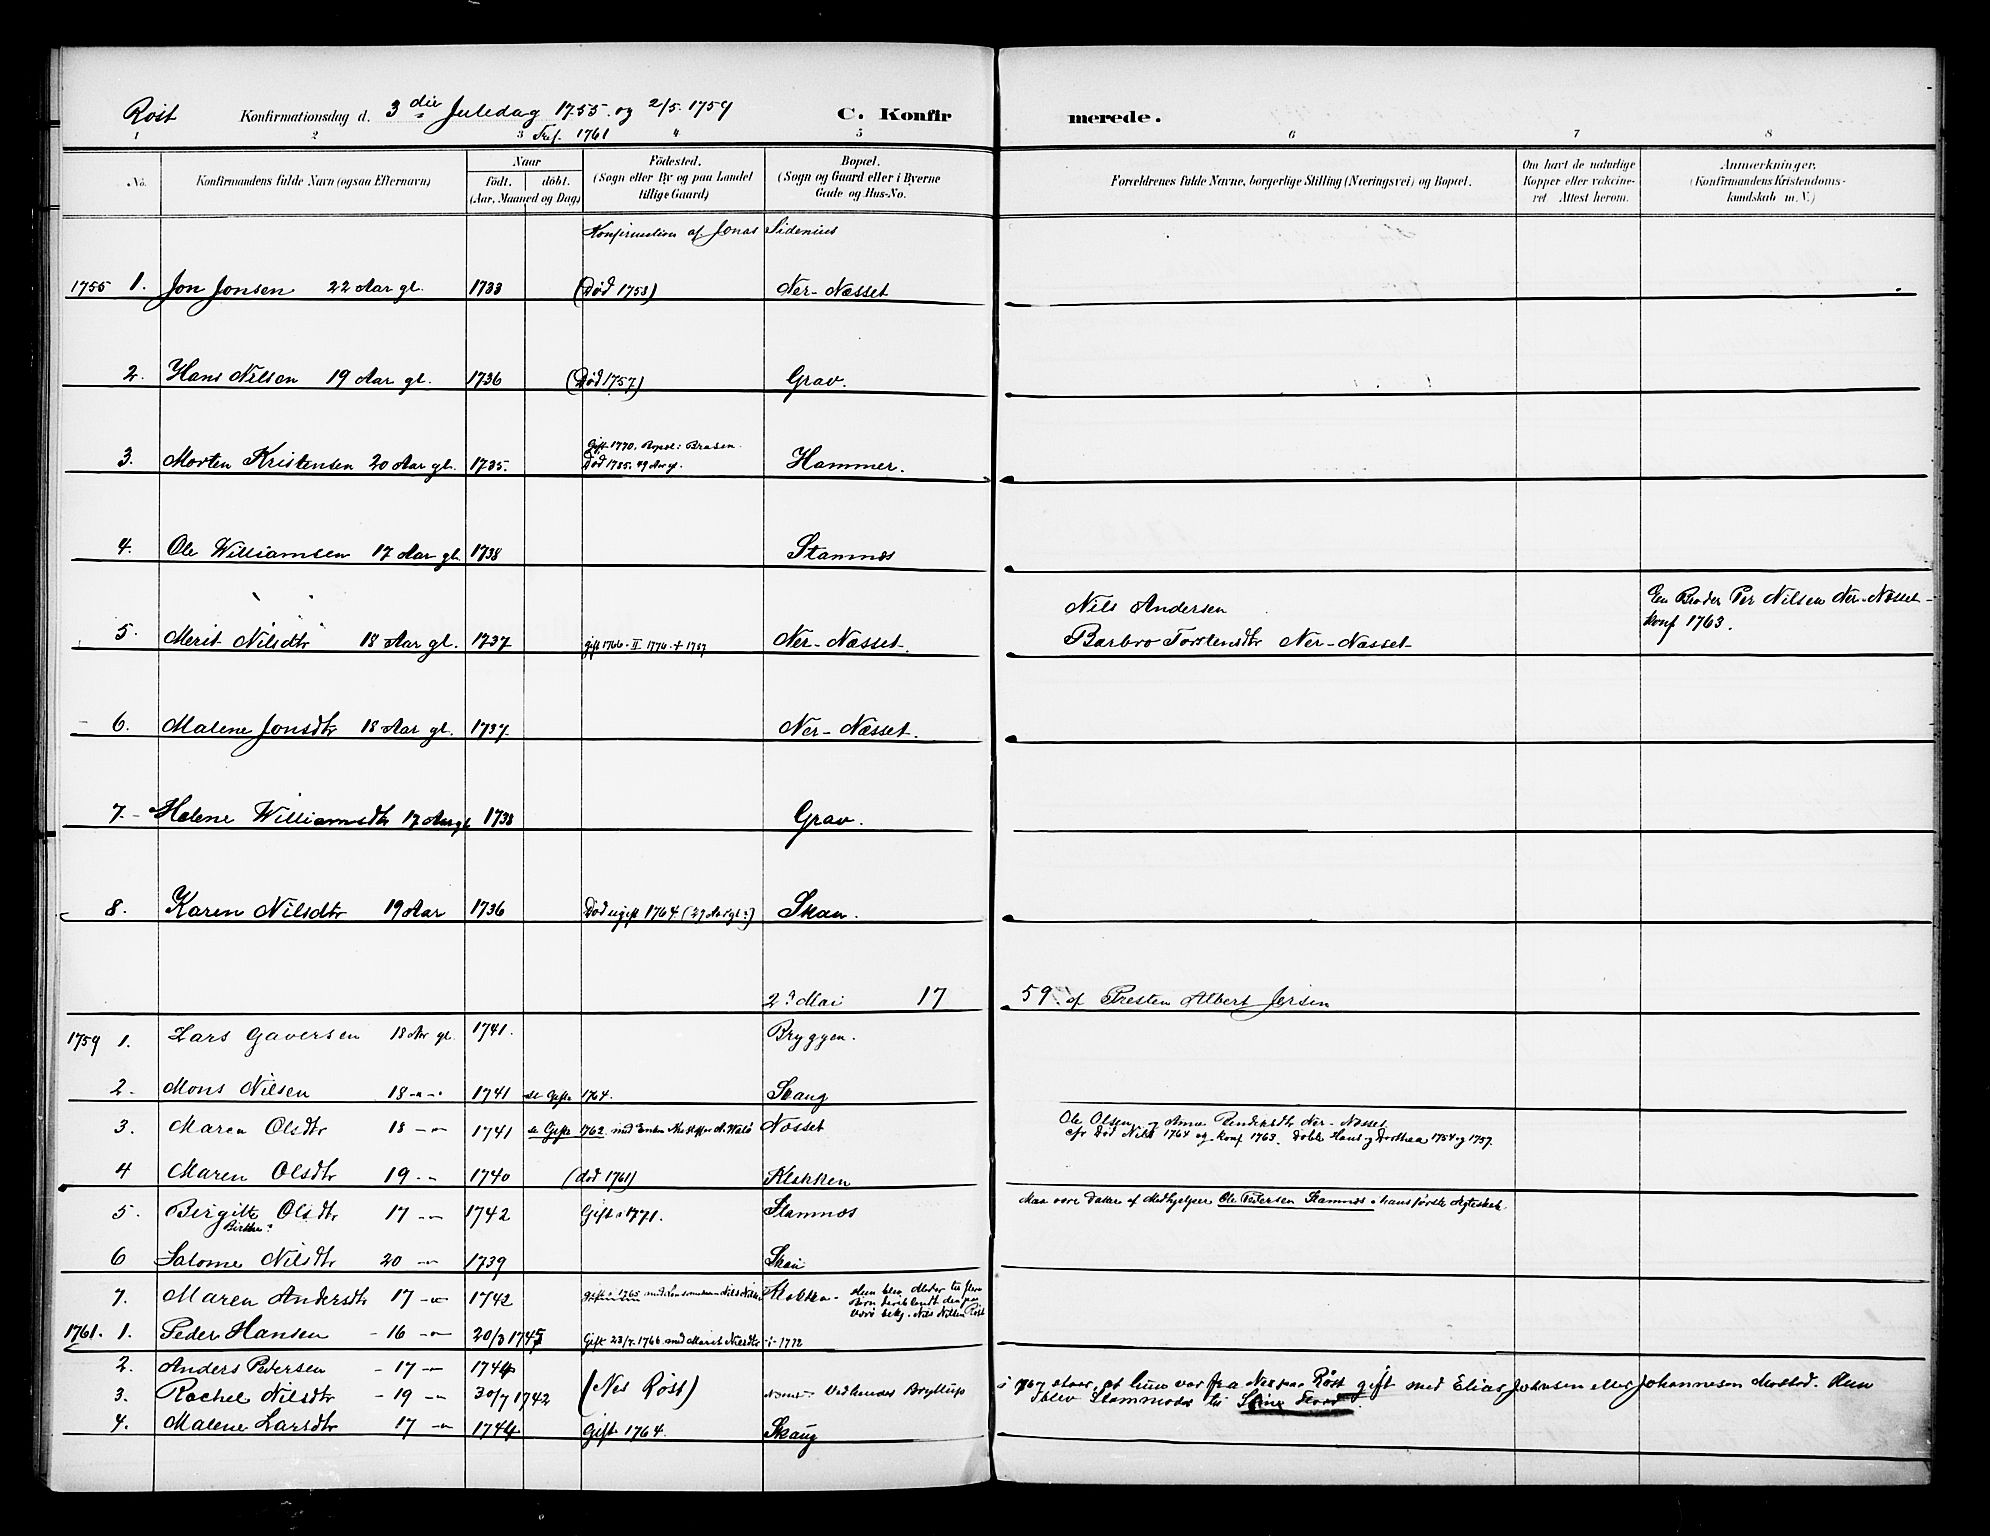 Røst Konfirmationsdag d. 3die Juledag 1755. og 2/5. 1759 C. Konfirmerede.
Tref. 1761
1 2 3 4 5 6 7 8
No.
Konfirmandens fulde Navn (ogsaa Efternavn)
Naar
født. døbt.
(Aar, Maaned og Dag)
Fødested.
(Sogn eller By og paa Landet
tillige Gaard)
Bopæl.
(Sogn og Gaard eller i Byerne
Gade og Hus-No.
Forældrenes fulde Navne, borgerlige Stilling (Næringsvei) og Bopæl.
Om havt de naturlige
Kopper eller vakcine-
ret Attest herom.
Anmærkninger.
(Konfirmandens Kristendoms-
kundskab m. V.)
Konfirmation af Jonas Sidenius
1755 1. Jon Jonsen 22 Aar gl. 1733 (Død 1758) Ner-Næsset
2. Hans Nilsen 19 Aar gl. 1736 (Død 1757) Grav.
Gift 1770. Bopæl: Brasen.
3. Morten Kristensen 20 Aar gl. 1735. Død 1785. 49 Aar gl. Hammer.
4. Ole Williamsen 17 Aar gl. 1738 Stamnæs
Nils Andersen En Broder Per Nilsen Ner-Næsset
5. Merit Nilsdtr 18 Aar gl. 1737 gift 1766 - II 1776 + 1787 Ner-Næsset. Barbro Torstensdtr Ner-Næsset konf 1763.
6. Malene Jonsdtr 18 Aar gl. 1737. Ner-Næsset.
7. Helene Williamsdtr 17 Aar gl 1738 Grav.
8. Karen Nilsdtr 19 Aar 1736 Død ugift 1764 (27 Aar gl:) Skau.
2d Mai 1759. af Presten Albert Jersin
1759 1. Lars Gaversen 18 Aar gl. 1741. Bryggen.
2. Mons Nilsen 18 -"- 1741 se Gifte 1764. Skaug
3. Maren Olsdtr 18 -"- 1741 se Gifte 1762 med Enkm Næsset Ole Olsen og Anne Bendiksdtr Ner-Næsset
cfr Død Nils 1764 og konf 1763. Døbte Hans og Dorthea 1754 og 1757.
4 Maren Olsdtr 19 -"- 1740 (død 1761) Klakken
5. Birgitte Olsdtr 17 -"- 1742 Gift 1771. Stamnæs Maa være Datter af Medhjelper Ole Pedersen Stamnæs i hans første Ægteskab.
Birthe?
6 Salome Nilsdtr 20 -"- 1739 Skau
7. Maren Andersdtr 17 -"- 1742 gift 1765 med Nils Nilsen Hun blev Moder til flere
Børn deriblandt den paa
Værø bekj. Nils Nilsen Røst
1761. 1. Peder Hansen - 16 -"- 20/3 1745 Gift 23/7. 1766 med Marit Nilsdtr - 1772
2. Anders Petersen - 17 -"- 1744
3. Rachel Nilsdtr - 19 -"- 30/7 1742 (Nes Røst) Ved hendes Bryllup i 1767 staar, at hun var fra Nes paa Røst gift med Elias Johnsen eller Johannesen Mostad. Hun
blev Stammoder til
4. Malene Larsdtr 17 -"- 1744 Gift 1764. Skaug